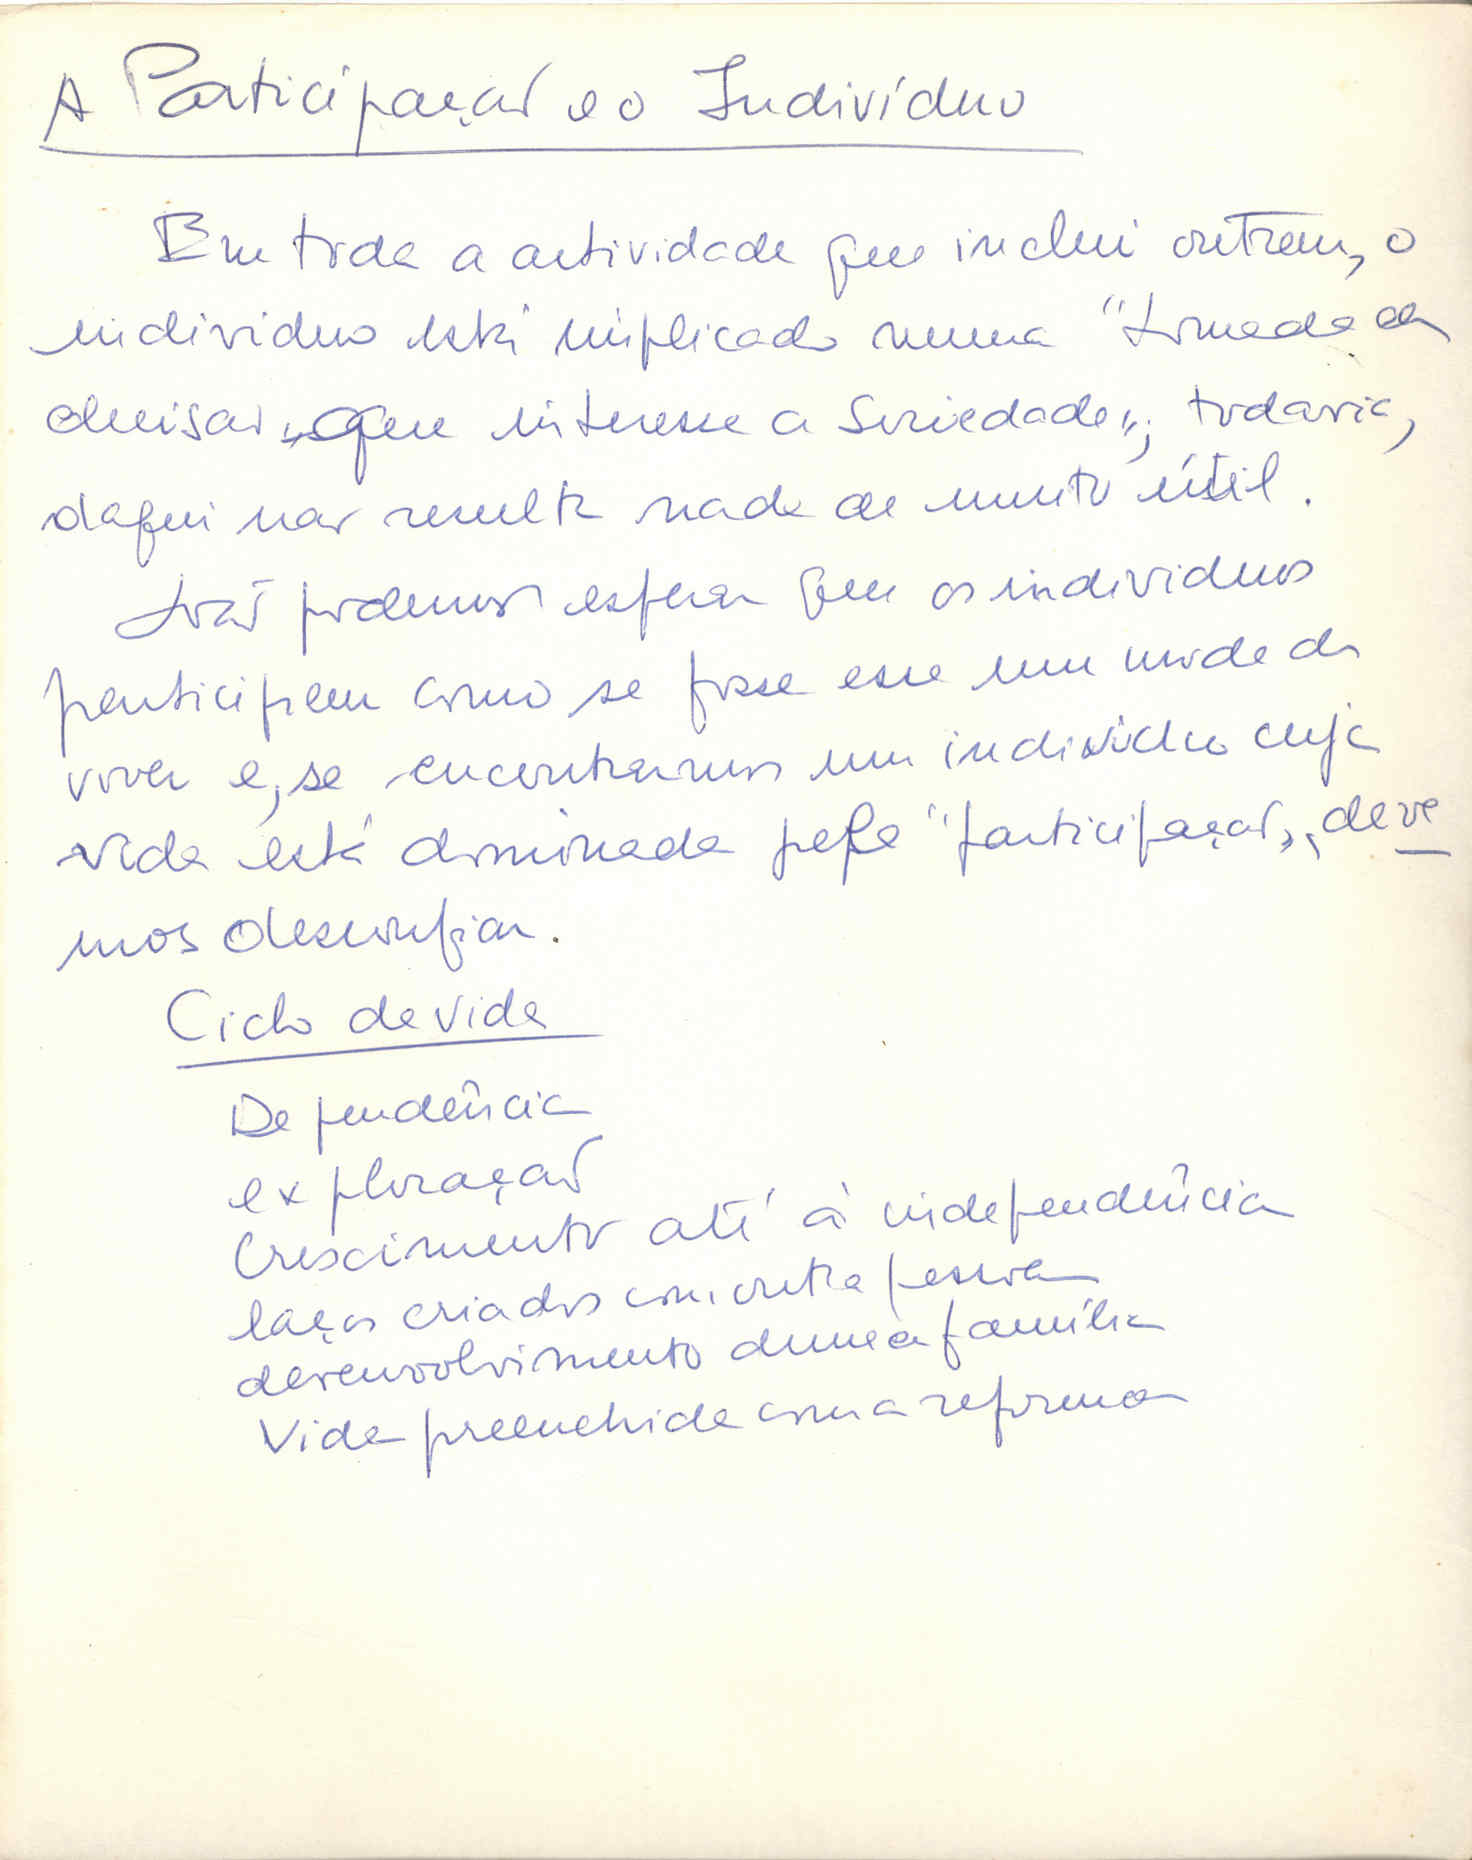 A Participação e o Indivíduo
Em toda a actividade que inclui outrem, o
individuo está implicado numa "tomada de
decisão, que interesse a Sociedade"; todavia,
daqui não resulta nada de muito útil.
Não podemos esperar que os individuos
participem como se fosse esse um modo de
viver e, se encontramos um individuo cuja
vida está dominada pela "participação", deve
mos desconfiar.
Ciclo de vida
Dependência
exploração
Crescimento até à independência
laços criados com outra pessoa
desenvolvimento duma família
Vida preenchida com a reforma